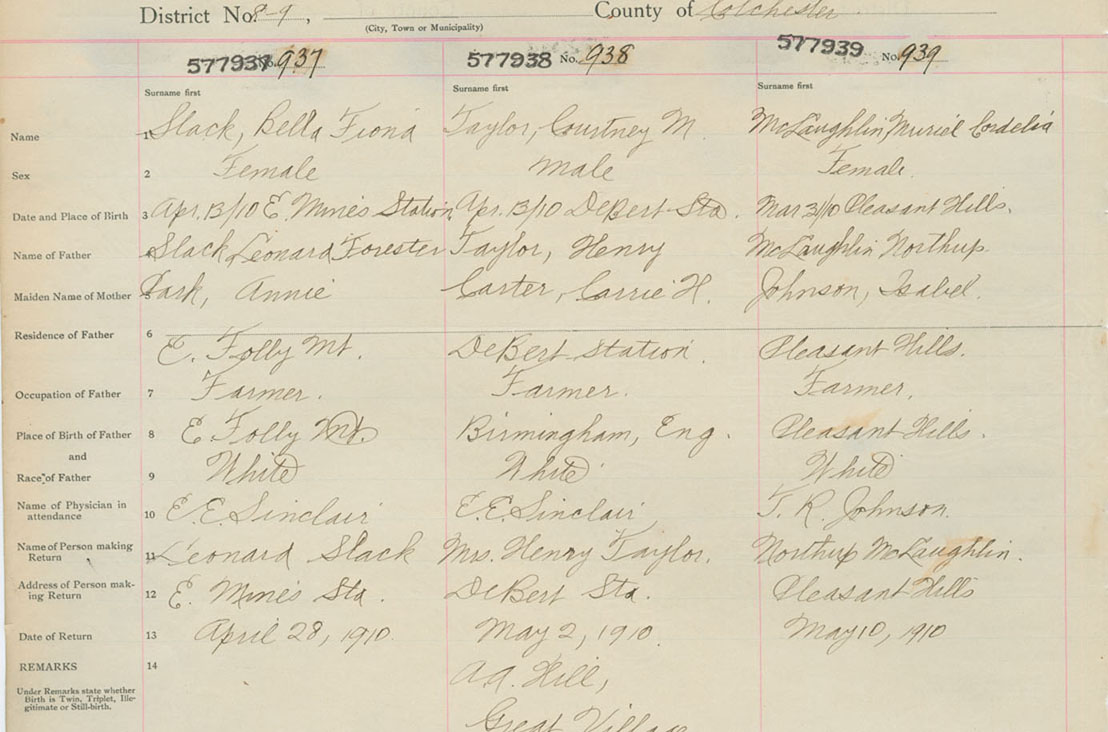 District No. 8-9, County of Colchester
(City, Town or Municipality)
577937 No. 937 577938 No. 938 577939 No. 939
Surname first Surname first Surname first
Name 1 Slack, Bella Fiona Taylor, Courtney M. McLaughlin, Muriel Cordelia
Sex 2 Female Male Female.
Date and Place of Birth 3 Apr. 13/10 E. Mines Station Apr. 13/10 DeBert Sta. Mar 3/10 Pleasant Hills.
Name of Father Slack Leonard Forester Taylor, Henry McLaughlin Northup
Maiden Name of Mother Annie Carter, Carrie H. Johnson, Isabel.
Residence of Father 6 E. Folly Mt. DeBert Station. Pleasant Hills.
Occupation of Father 7 Farmer. Farmer. Farmer.
Place of Birth of Father 8 E. Folly Mt. Birmingham, Eng. Pleasant Hills.
and
Race of Father 9 White White White
Name of Physician in
attendance 10 E.E. Sinclair E.E. Sinclair T. R. Johnson.
Name of Person making
Return 11 Leonard Slack Mrs. Henry Taylor. Northup McLaughlin.
Address of Person mak-
ing Return 12 E. Mines Sta. DeBert Sta. Pleasant Hills
Date of Return 13 April 28, 1910. May 2, 1910. May 10, 1910
REMARKS 14 A.A. Hill,
Under Remarks state whether
Birth is Twin, Triplet, Ille-
gitimate or Still-birth.
Great Village